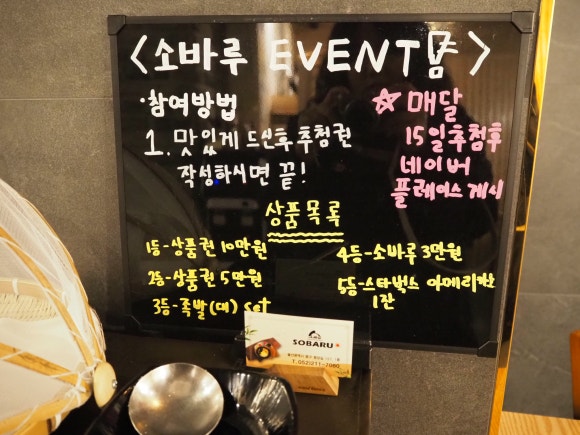 <소바루 EVENT>
·참여방법
1. 맛있게 드신후 추첨권
작성하시면 끝!
☆ 매달
15일 추첨후
네이버
플레이스 게시
상품목록
1등-상품권 10만원
2등-상품권 5만원
3등-족발(대) set
4등-소바루 3만원
5등-스타벅스 아메리카노
1잔
SOBARU
T. 052)211-7980